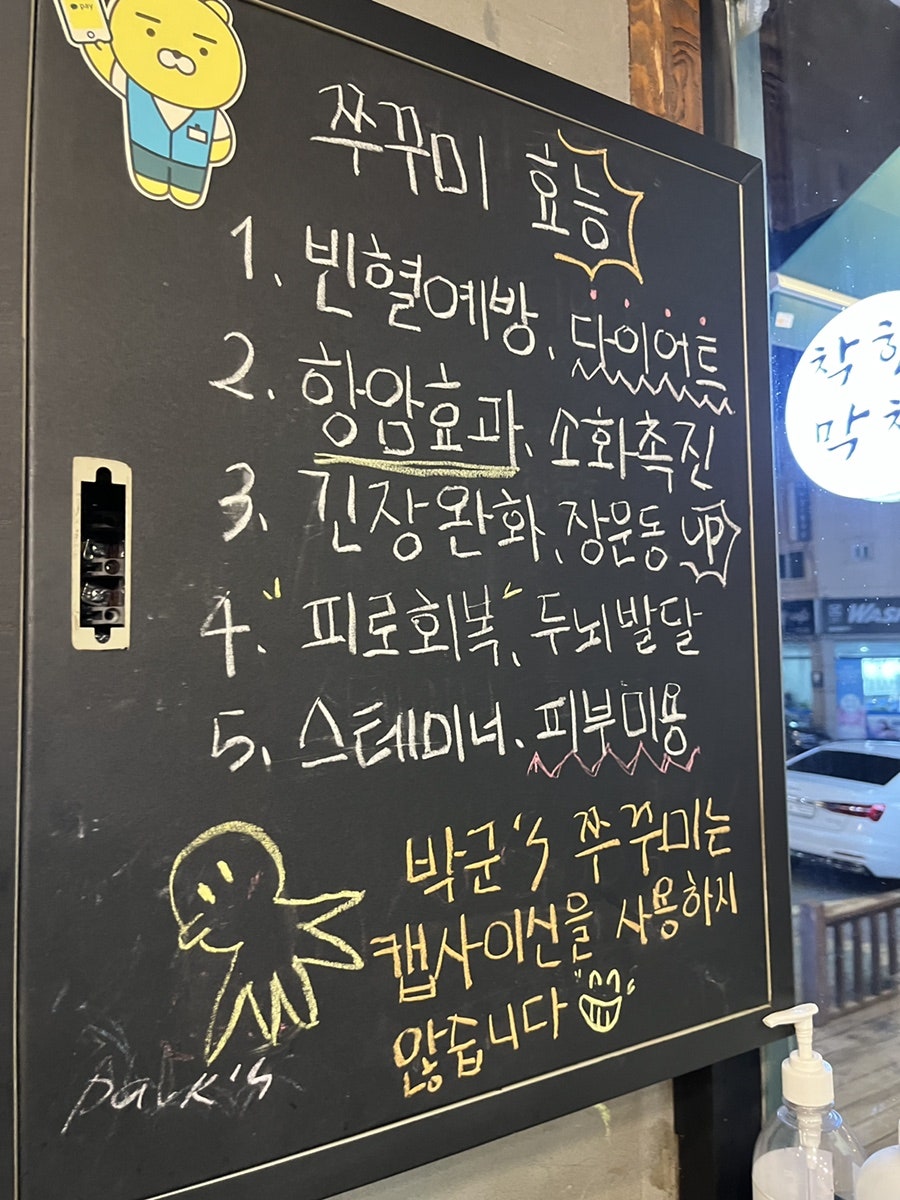 pay
쭈꾸미 효능
1. 빈혈예방, 다이어트
2. 항암효과, 소화촉진
3. 긴장완화, 장운동 UP
4. "피로회복", 두뇌발달
5. 스테미너, 피부미용
박군's 쭈꾸미는
캡사이신을 사용하지
않습니다
park's
착한
막
WAS